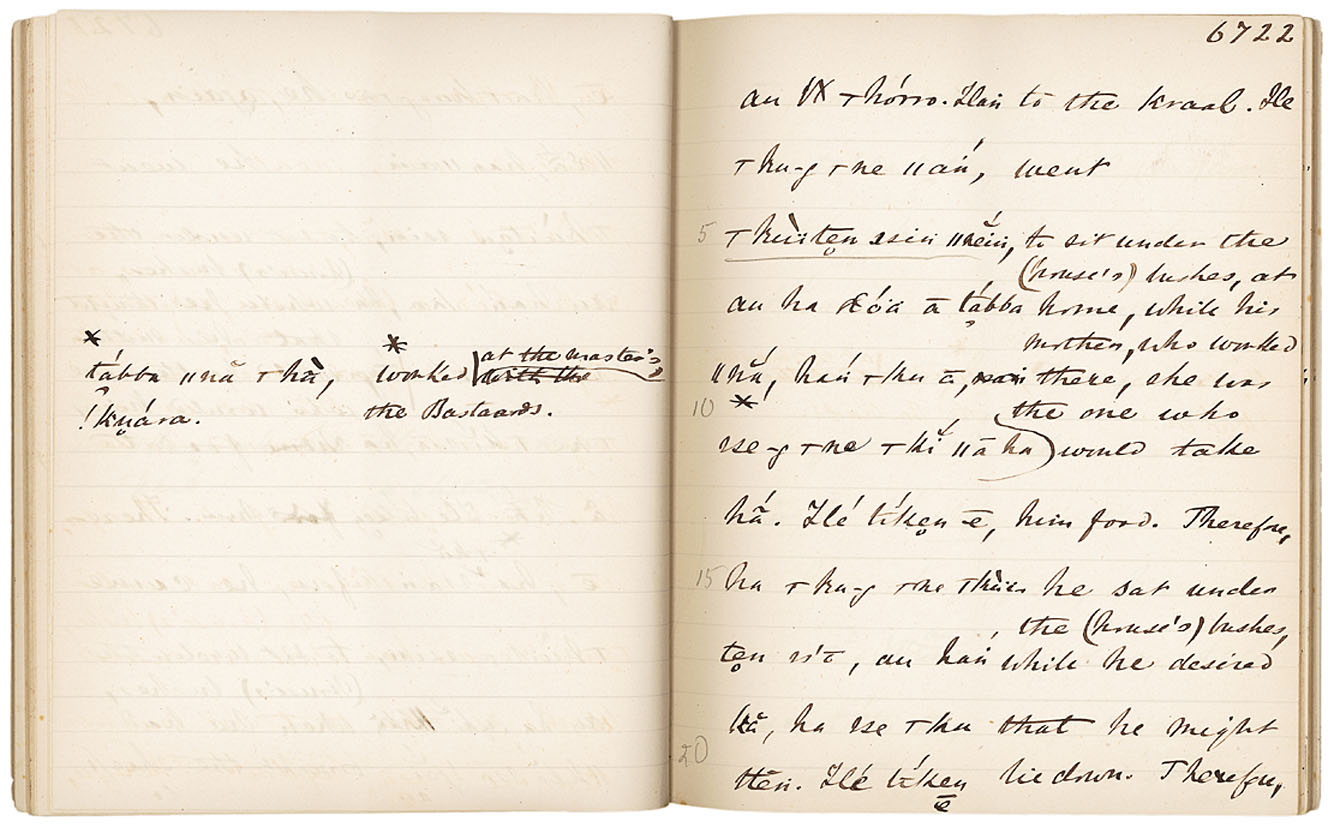 *
tábba ǁnă ꞇ hằ,
!kṷára.
*
worked at the master's,
with the
the Bastaards.
6722
au ꞇhórro. Ĭlau to the kraal. Ĭle
ꞇ ku-g ꞇ ne ǁań, went
5
ꞇ kùïten ssin ǁneïn, to sit under the
(house's) bushes, at
au ha óa ā tábba home, while his
mother, who worked
ǁnắ, hań ꞇ ku ā, there, she was
10
*
the one who
se-g ꞇ ne ꞇ kĭ ǁā ha would take
hắ. Ĭlé tíken-ē, him food. Therefore,
15
ha ꞇ ku-g ꞇ ne he sat under
the (house's) bushes,
ten , au hań while he desired
ha se ꞇ ku that he might
20
ttēn. Ĭlé tíken lie down. Therefore,
ē